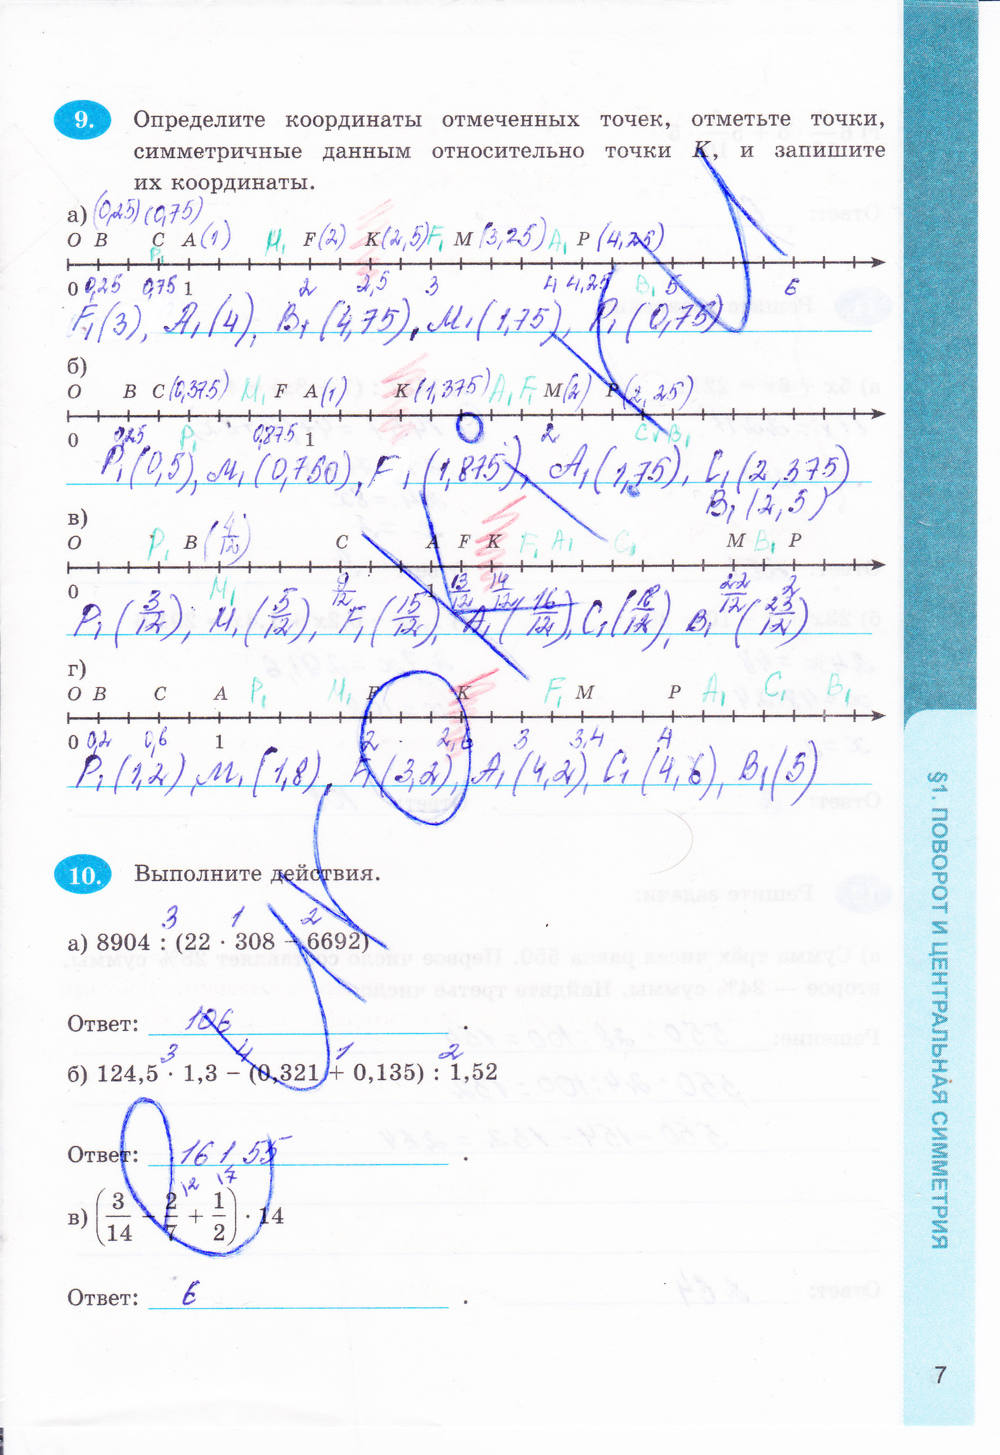 9. Определите координаты отмеченных точек, отметьте точки,
симметричные данным относительно точки K, и запишите
их координаты.
а) (0,25) (0,75)
O B C A (1) M₁ F (2) K (2,5) F₁ M (3,25) A₁ P (4,25)
P₁
0 0,25 0,75 1 2 2,5 3 4 4,25 B₁ 5 6
F₁(3), A₁(4), B₁(4,75), M₁(1,75), P₁(0,75)
б)
O B C (0,375) M₁ F A (1) K (1,375) A₁ F₁ M (2) P (2,25)
0 0,25 P₁ 0,875 1 2 C₁ B₁
P₁(0,5), M₁(0,750), F₁(1,875), A₁(1,75), C₁(2,375)
B₁(2,5)
в)
O P₁ B (4/12) C A F K F₁ A₁ C₁ M B₁ P
0 M₁ 9/12 1 13/12 14/12 22/12 2
P₁(3/12), M₁(5/12), F₁(15/12), A₁(16/12), C₁, B₁
г)
O B C A P₁ M₁ F K F₁ M P A₁ C₁ B₁
0 0,2 0,6 1 2 2,6 3 3,4 4
P₁(1,2) M₁(1,8), F₁(3,2), A₁(4,2), C₁(4,6), B₁(5)
10. Выполните действия.
3 1 2
а) 8904 : (22 · 308 − 6692)
Ответ: 106 .
3 4 1 2
б) 124,5 · 1,3 − (0,321 + 0,135) : 1,52
Ответ: 161 55 .
в) (3/14 − 2/7 + 1/2) · 14
Ответ: 6 .
§1. ПОВОРОТ И ЦЕНТРАЛЬНАЯ СИММЕТРИЯ
7